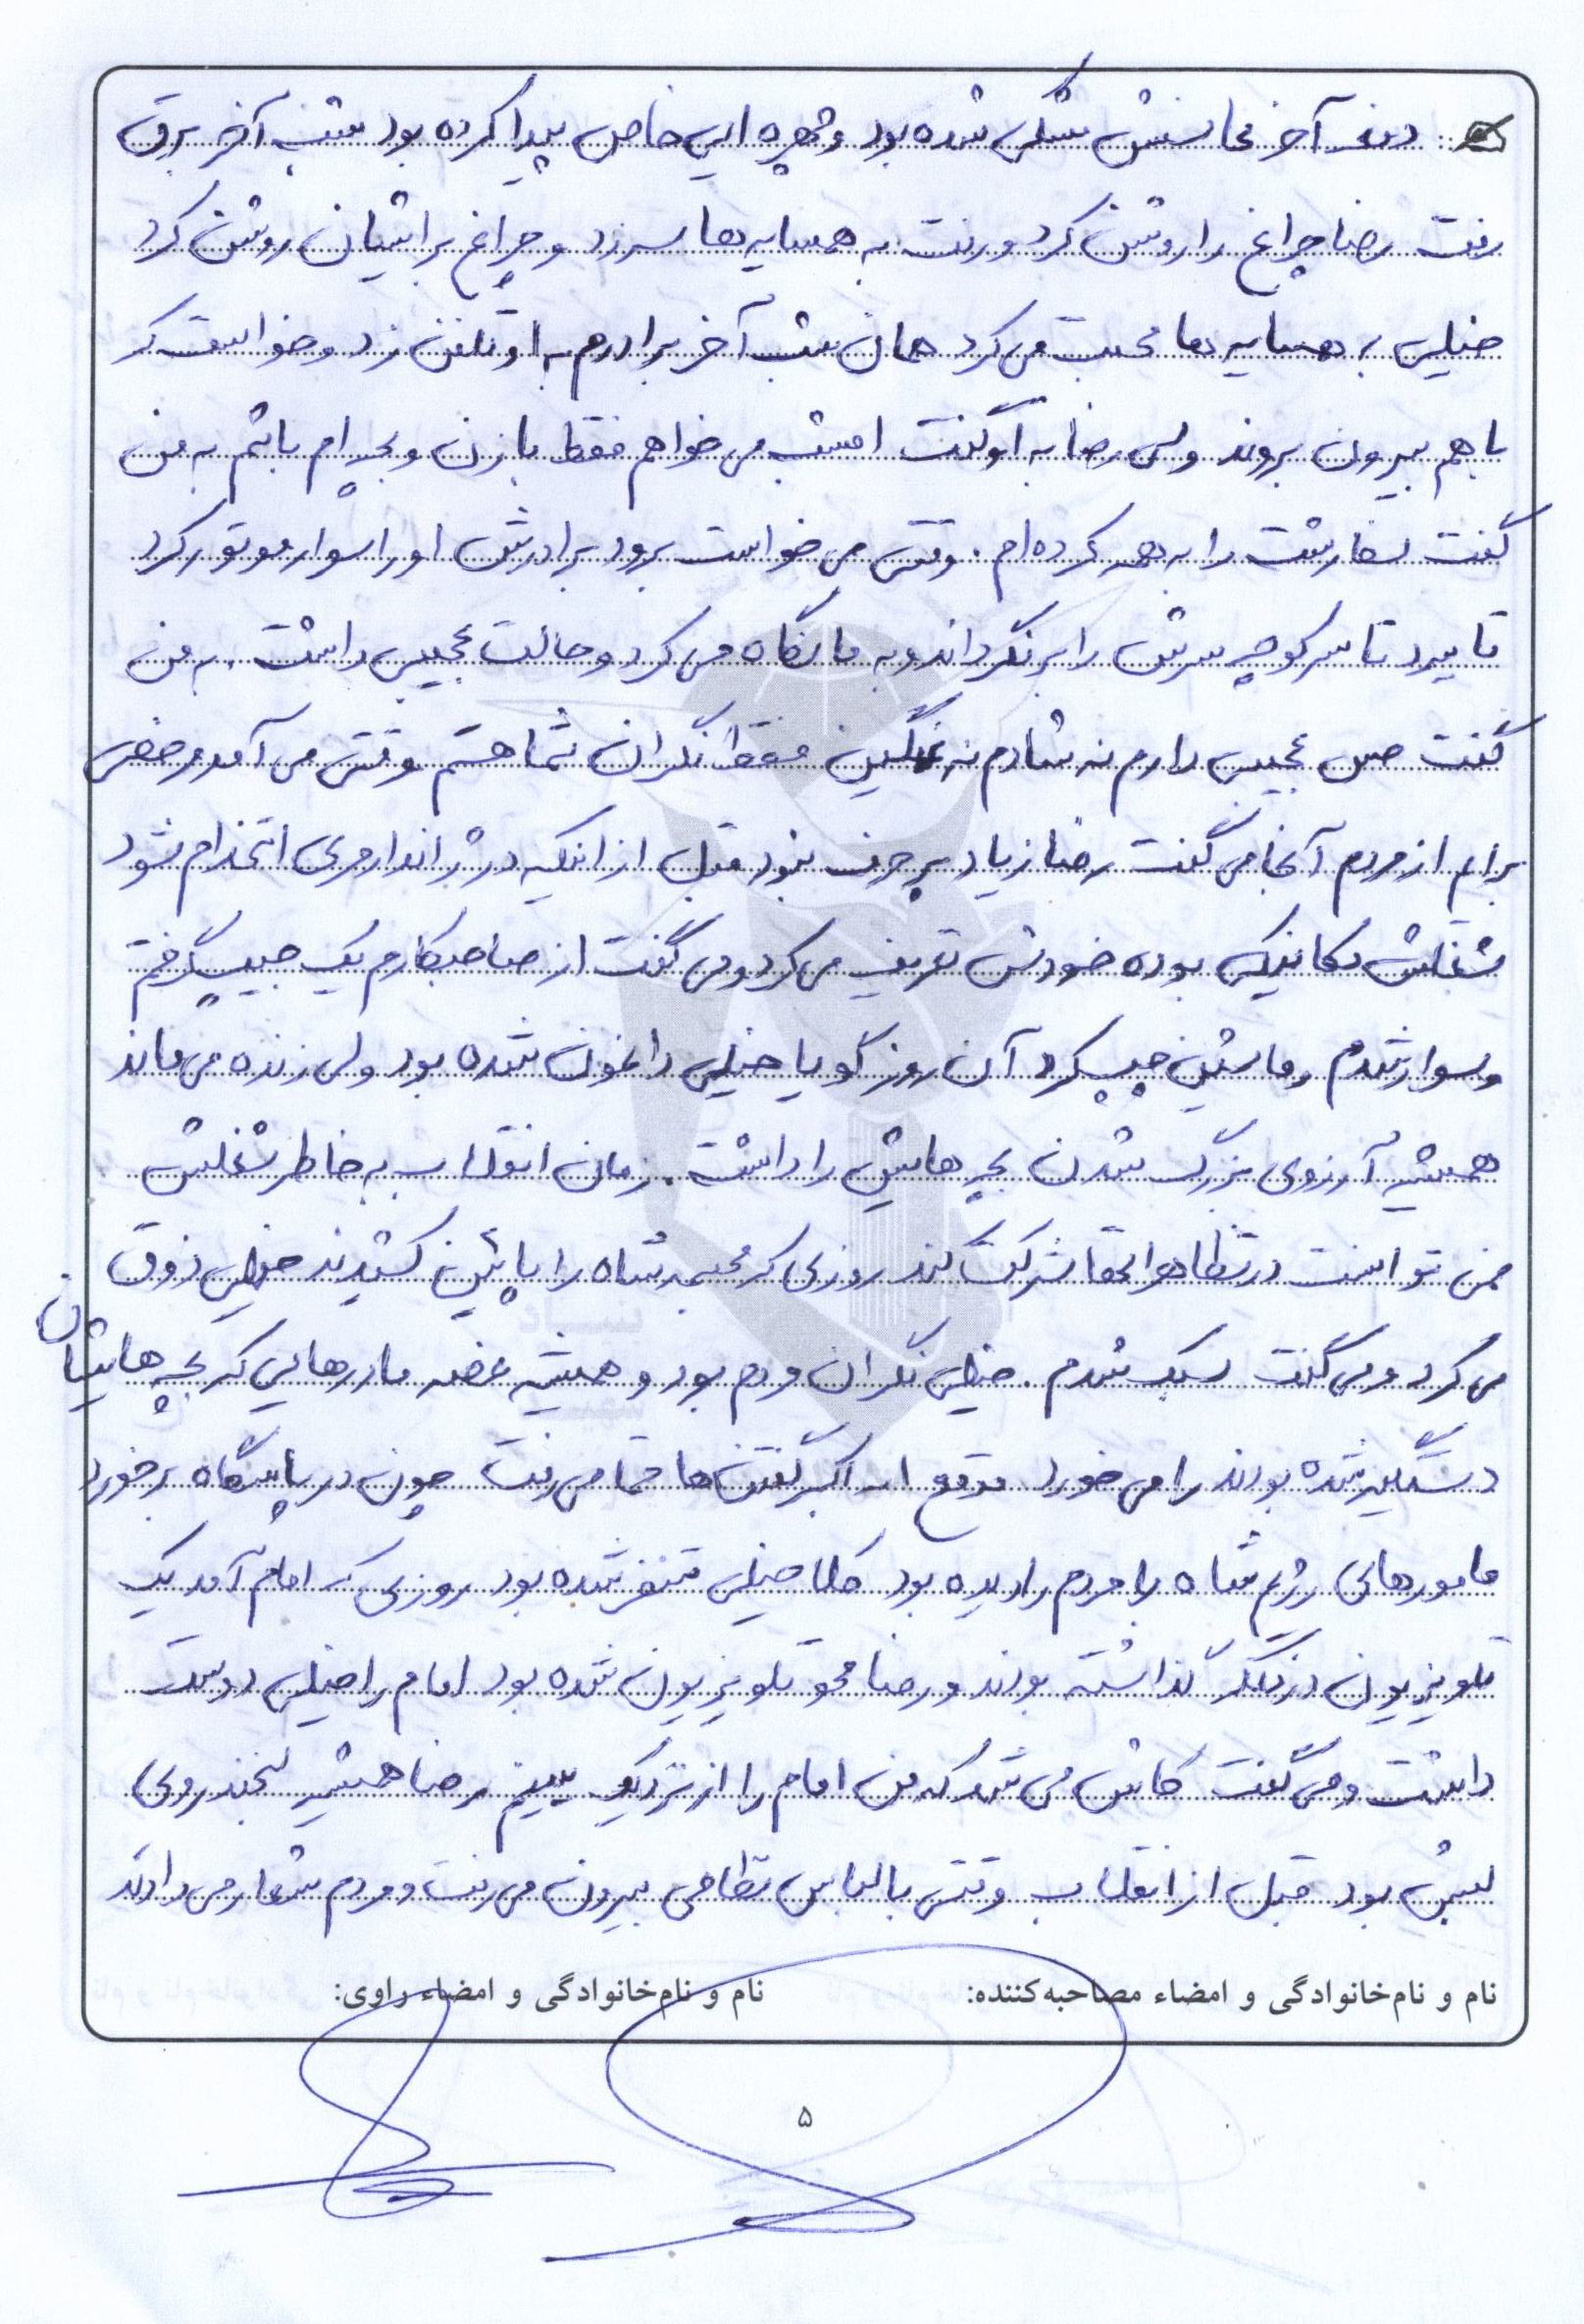 دفعه آخر محاسنش مشکی شده بود و چهره ایی خاص پیدا کرده بود شب آخر برق
رفت رضا چراغ را روشن کرد و رفت به همسایه ها سر زد و چراغ برایشان روشن کرد
خیلی به همسایه ها محبت می کرد همان شب آخر برادرم به او تلفن زد و خواست که
با هم بیرون بروند ولی رضا به او گفت امشب می خواهم فقط با زن و بچه ام باشم به من
گفت سفارشت را به همه کرده ام. وقتی می خواست برود برادرش او را سوار موتور کرد
تا ببرد تا سر کوچه سرش را برنگرداند و به ما نگاه می کرد و حالت عجیبی داشت. به من
گفت حس عجیبی دارم نه شادم نه غمگین فقط نگران شما هستم وقتی می آمد مرخصی
برایم از مردم آنجا می گفت رضا زیاد پر حرف نبود قبل از اینکه در ژاندارمری استخدام شود
شغلش مکانیکی بوده خودش تعریف می کرد و می گفت از صاحبکارم یک جیپ گرفتم
و سوار شدم و ماشین چپ کرد آن روز گویا خیلی داغون شده بود ولی زنده می ماند
همیشه آرزوی بزرگ شدن بچه هایش را داشت. زمان انقلاب به خاطر شغلش
نمی توانست در تظاهراتها شرکت کند روزی که مجسمه شاه را پائین کشیدند خیلی ذوق
می کرد و می گفت سبک شدم. خیلی نگران مردم بود و همیشه غصه مادرهایی که بچه هایشان
دستگیر شده بودند را می خورد موقع الله اکبر گفتن ها حتما می رفت چون در پاسگاه برخورد
مامورهای رژیم شاه با مردم را دیده بود کلا خیلی متنفر شده بود روزی که امام آمد یک
تلویزیون در تکلگر گذاشته بودند و رضا محو تلویزیون شده بود امام را خیلی دوست
داشت و می گفت کاش می شد که من امام را از نزدیک ببینم رضا همیشه لبخند روی
لبش بود قبل از انقلاب وقتی با لباس نظامی بیرون می رفت و مردم شعار می دادند
نام و نام‌خانوادگی و امضاء مصاحبه‌کننده: نام و نام‌خانوادگی و امضاء راوی:
۵